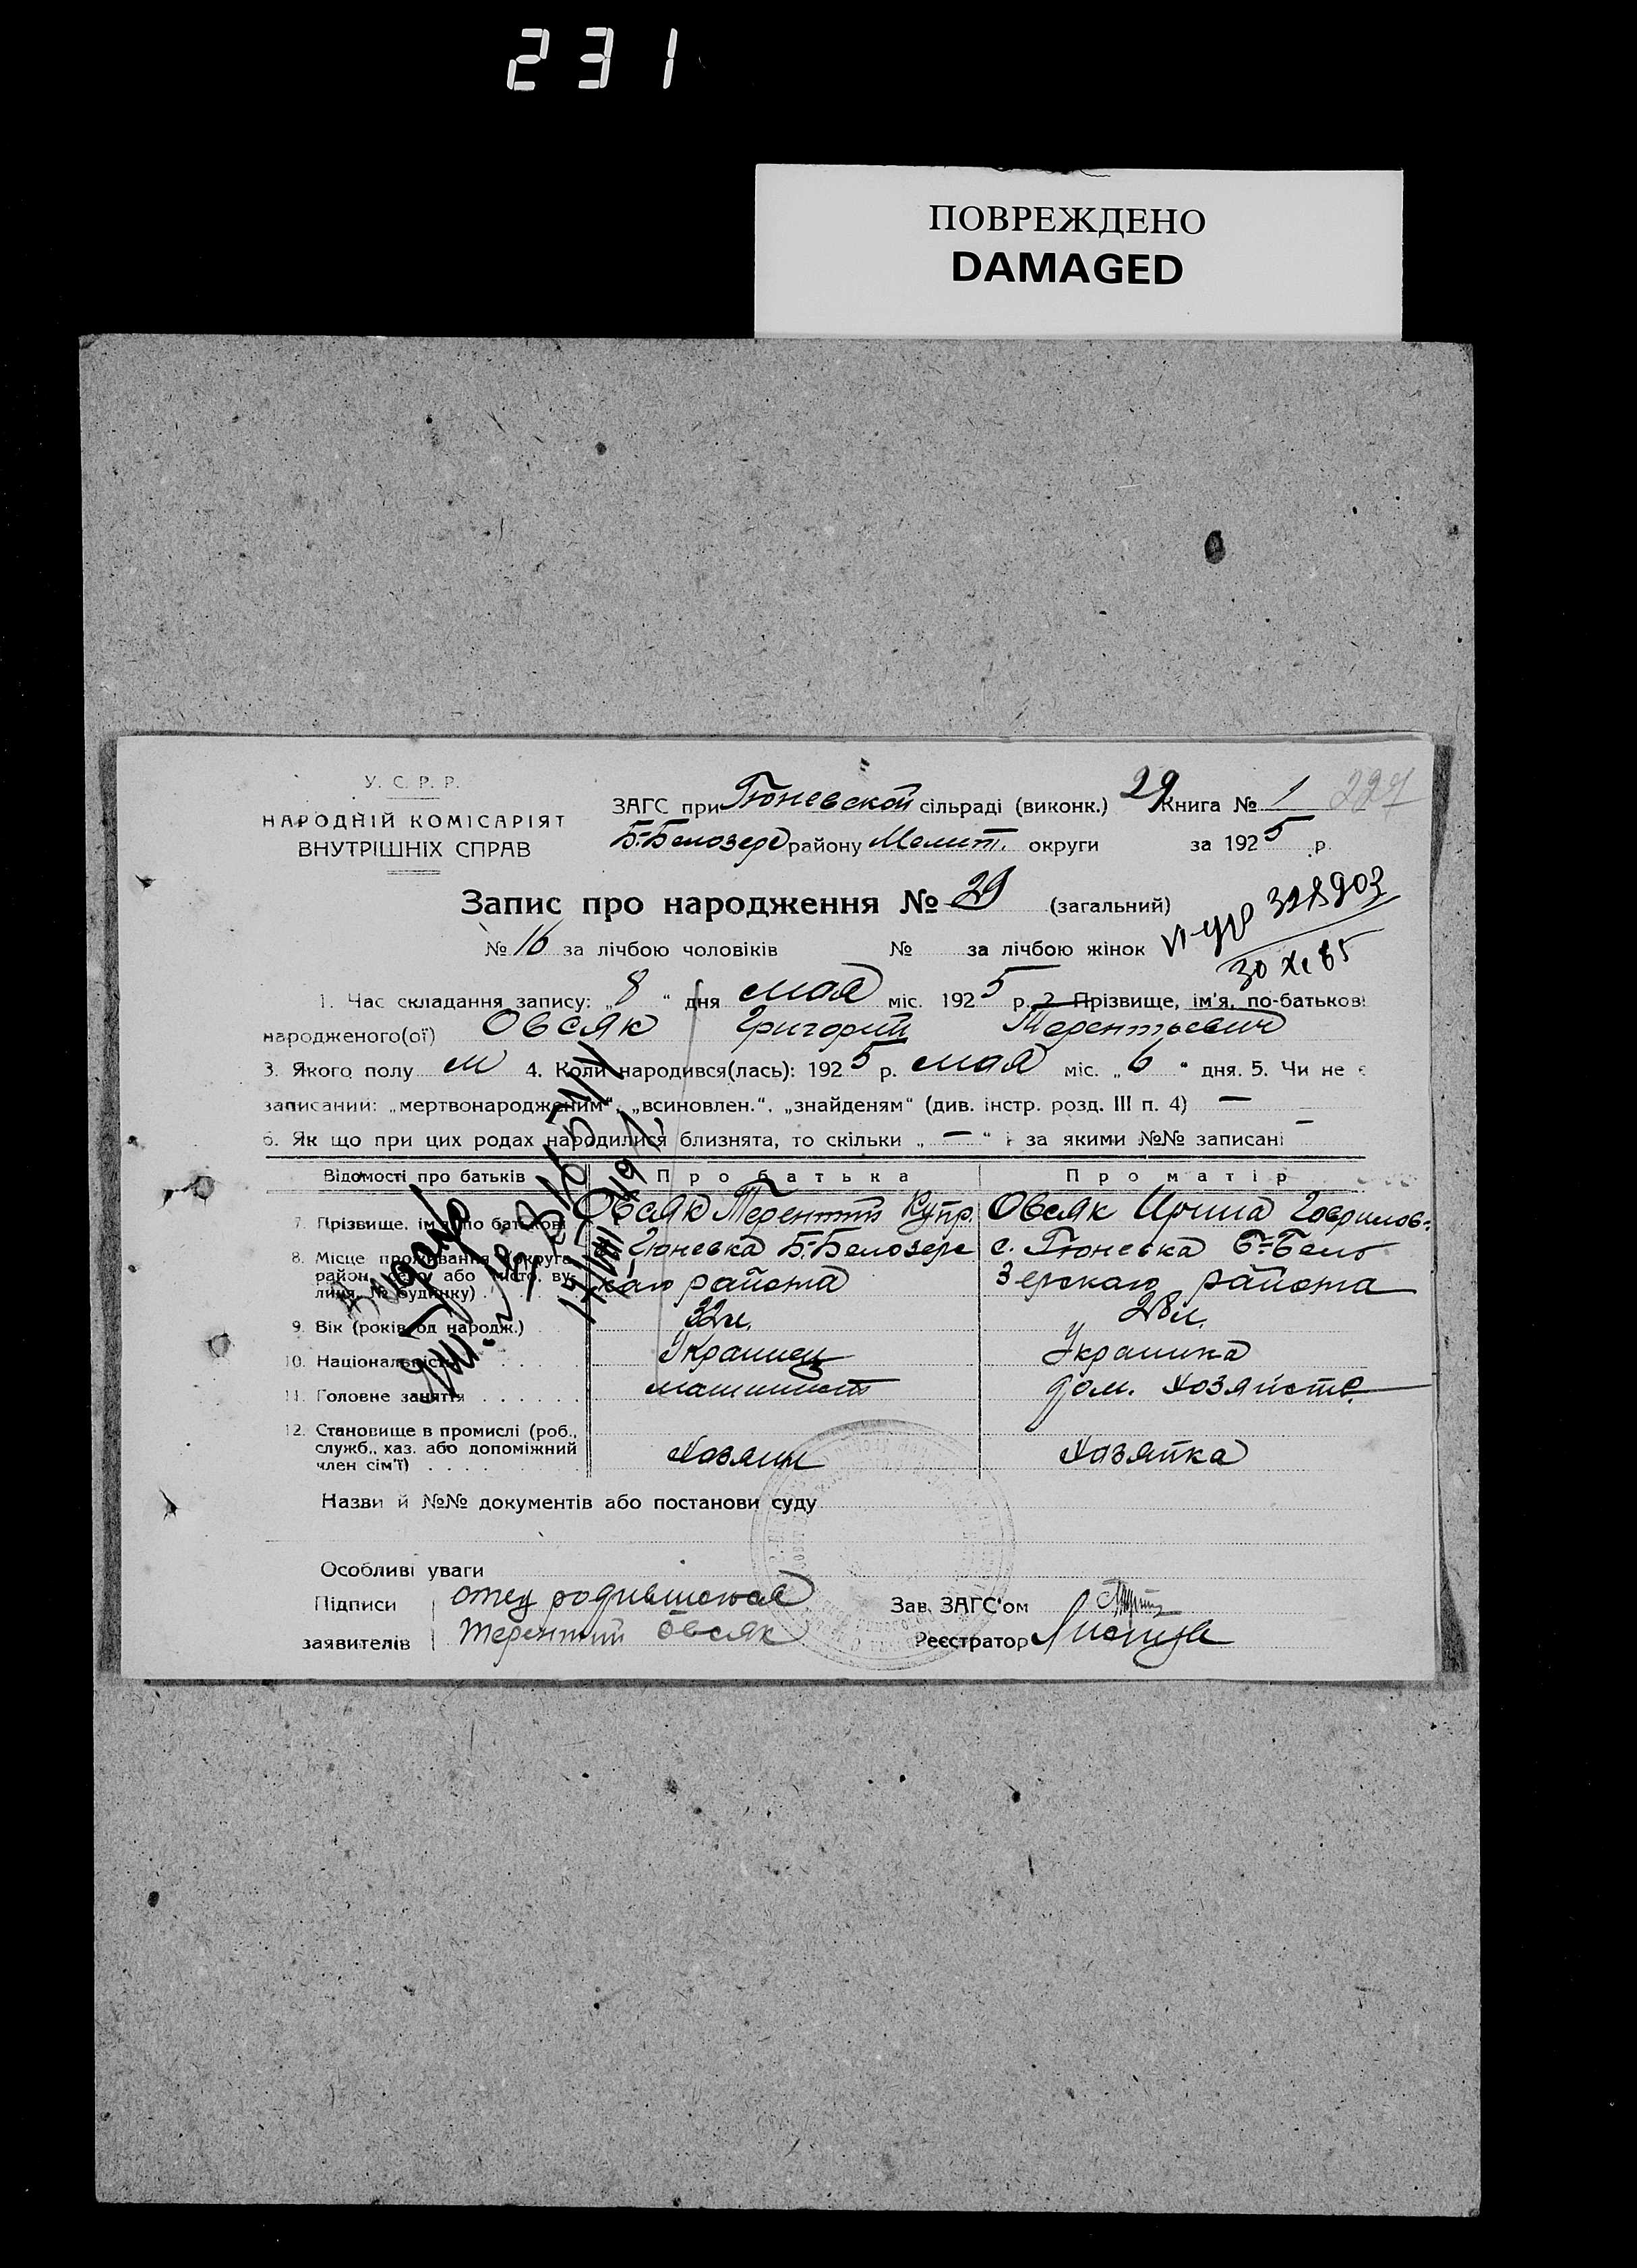 231
ПОВРЕЖДЕНО
DAMAGED
У. С. Р. Р.
НАРОДНІЙ КОМІСАРІЯТ
ВНУТРІШНІХ СПРАВ
ЗАГС при Тюневской сільраді (виконк.) 29 Книга № 1 227
Б-Белозер району Мелит. округи за 1925 р.
Запис про народження № 29 (загальний)
№ 16 за лічбою чоловіків № за лічбою жінок
328903
30 XI 85
1. Час складання запису: „8“ дня мая міс. 1925 р. 2. Прізвище, ім'я, по-батькові
народженого(ої) Овсяк Григорий Терентьевич
3. Якого полу м 4. Коли народився(лась): 1925 р. мая міс. „6“ дня. 5. Чи не є
записаний: „мертвонародженим“, „всиновлен.“, „знайденям“ (див. інстр. розд. III п. 4) —
6. Як що при цих родах народилися близнята, то скільки „—“ і за якими №№ записані —
Відомості про батьків Про батька Про матір
7. Прізвище, ім'я, по батькові Овсяк Терентий Купр. Овсяк Ирина Гаврилов-
8. Місце проживання (округа, с. Тюневка Б-Белозерс с. Тюневка Б-Бело
район, село або місто, ву-
лиця, № будинку) кого района зерского района
9. Вік (років од народж.) 32 л. 28 л.
10. Національність Украинец Украинка
11. Головне заняття машинист дом. хозяйств.
12. Становище в промислі (роб.,
служб., хаз. або допоміжний
член сім'ї) Хозяин Хозяйка
Назви й №№ документів або постанови суду
Особливі уваги
Підписи отец родившегося Зав. ЗАГС'ом
заявителів Терентий Овсяк Реєстратор